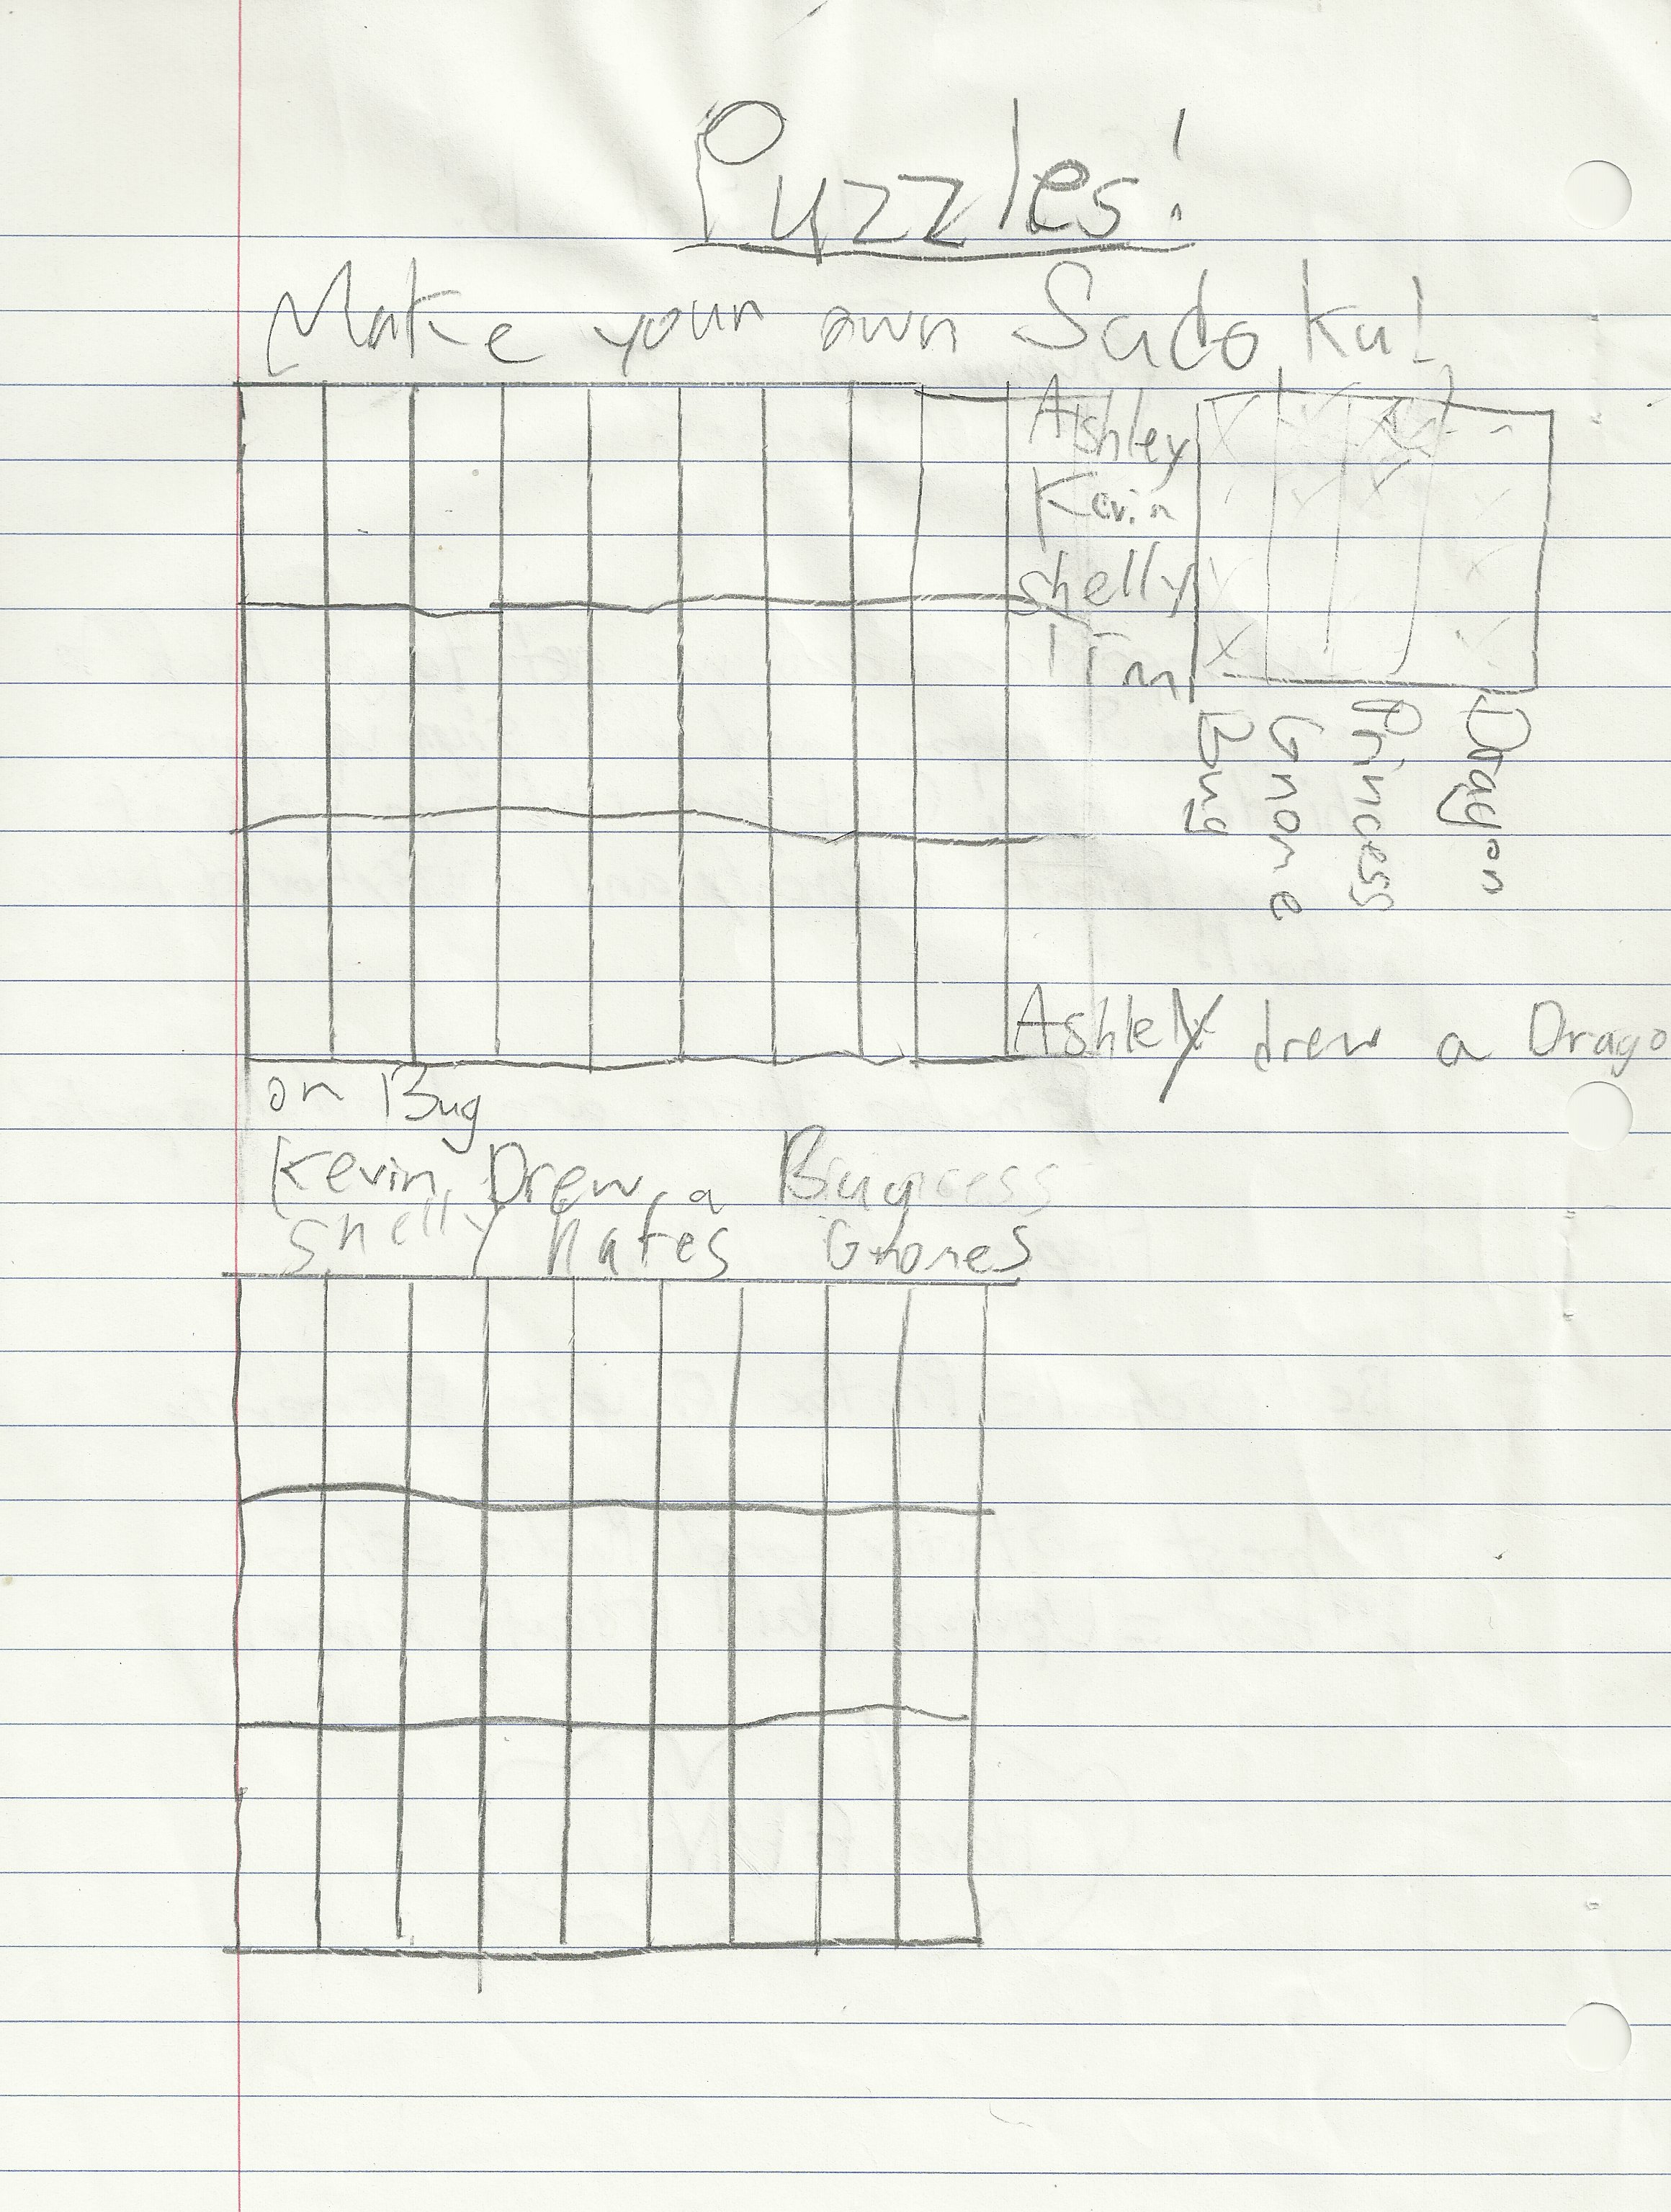 Puzzles!
Make your own Sudoku!
Ashley
Kevin
Shelly
Tim
Bug
Gnome
Princess
Dragon
Ashlely drew a Drago
on Bug
Kevin Drew a Bug
Shelly hates Gnomes